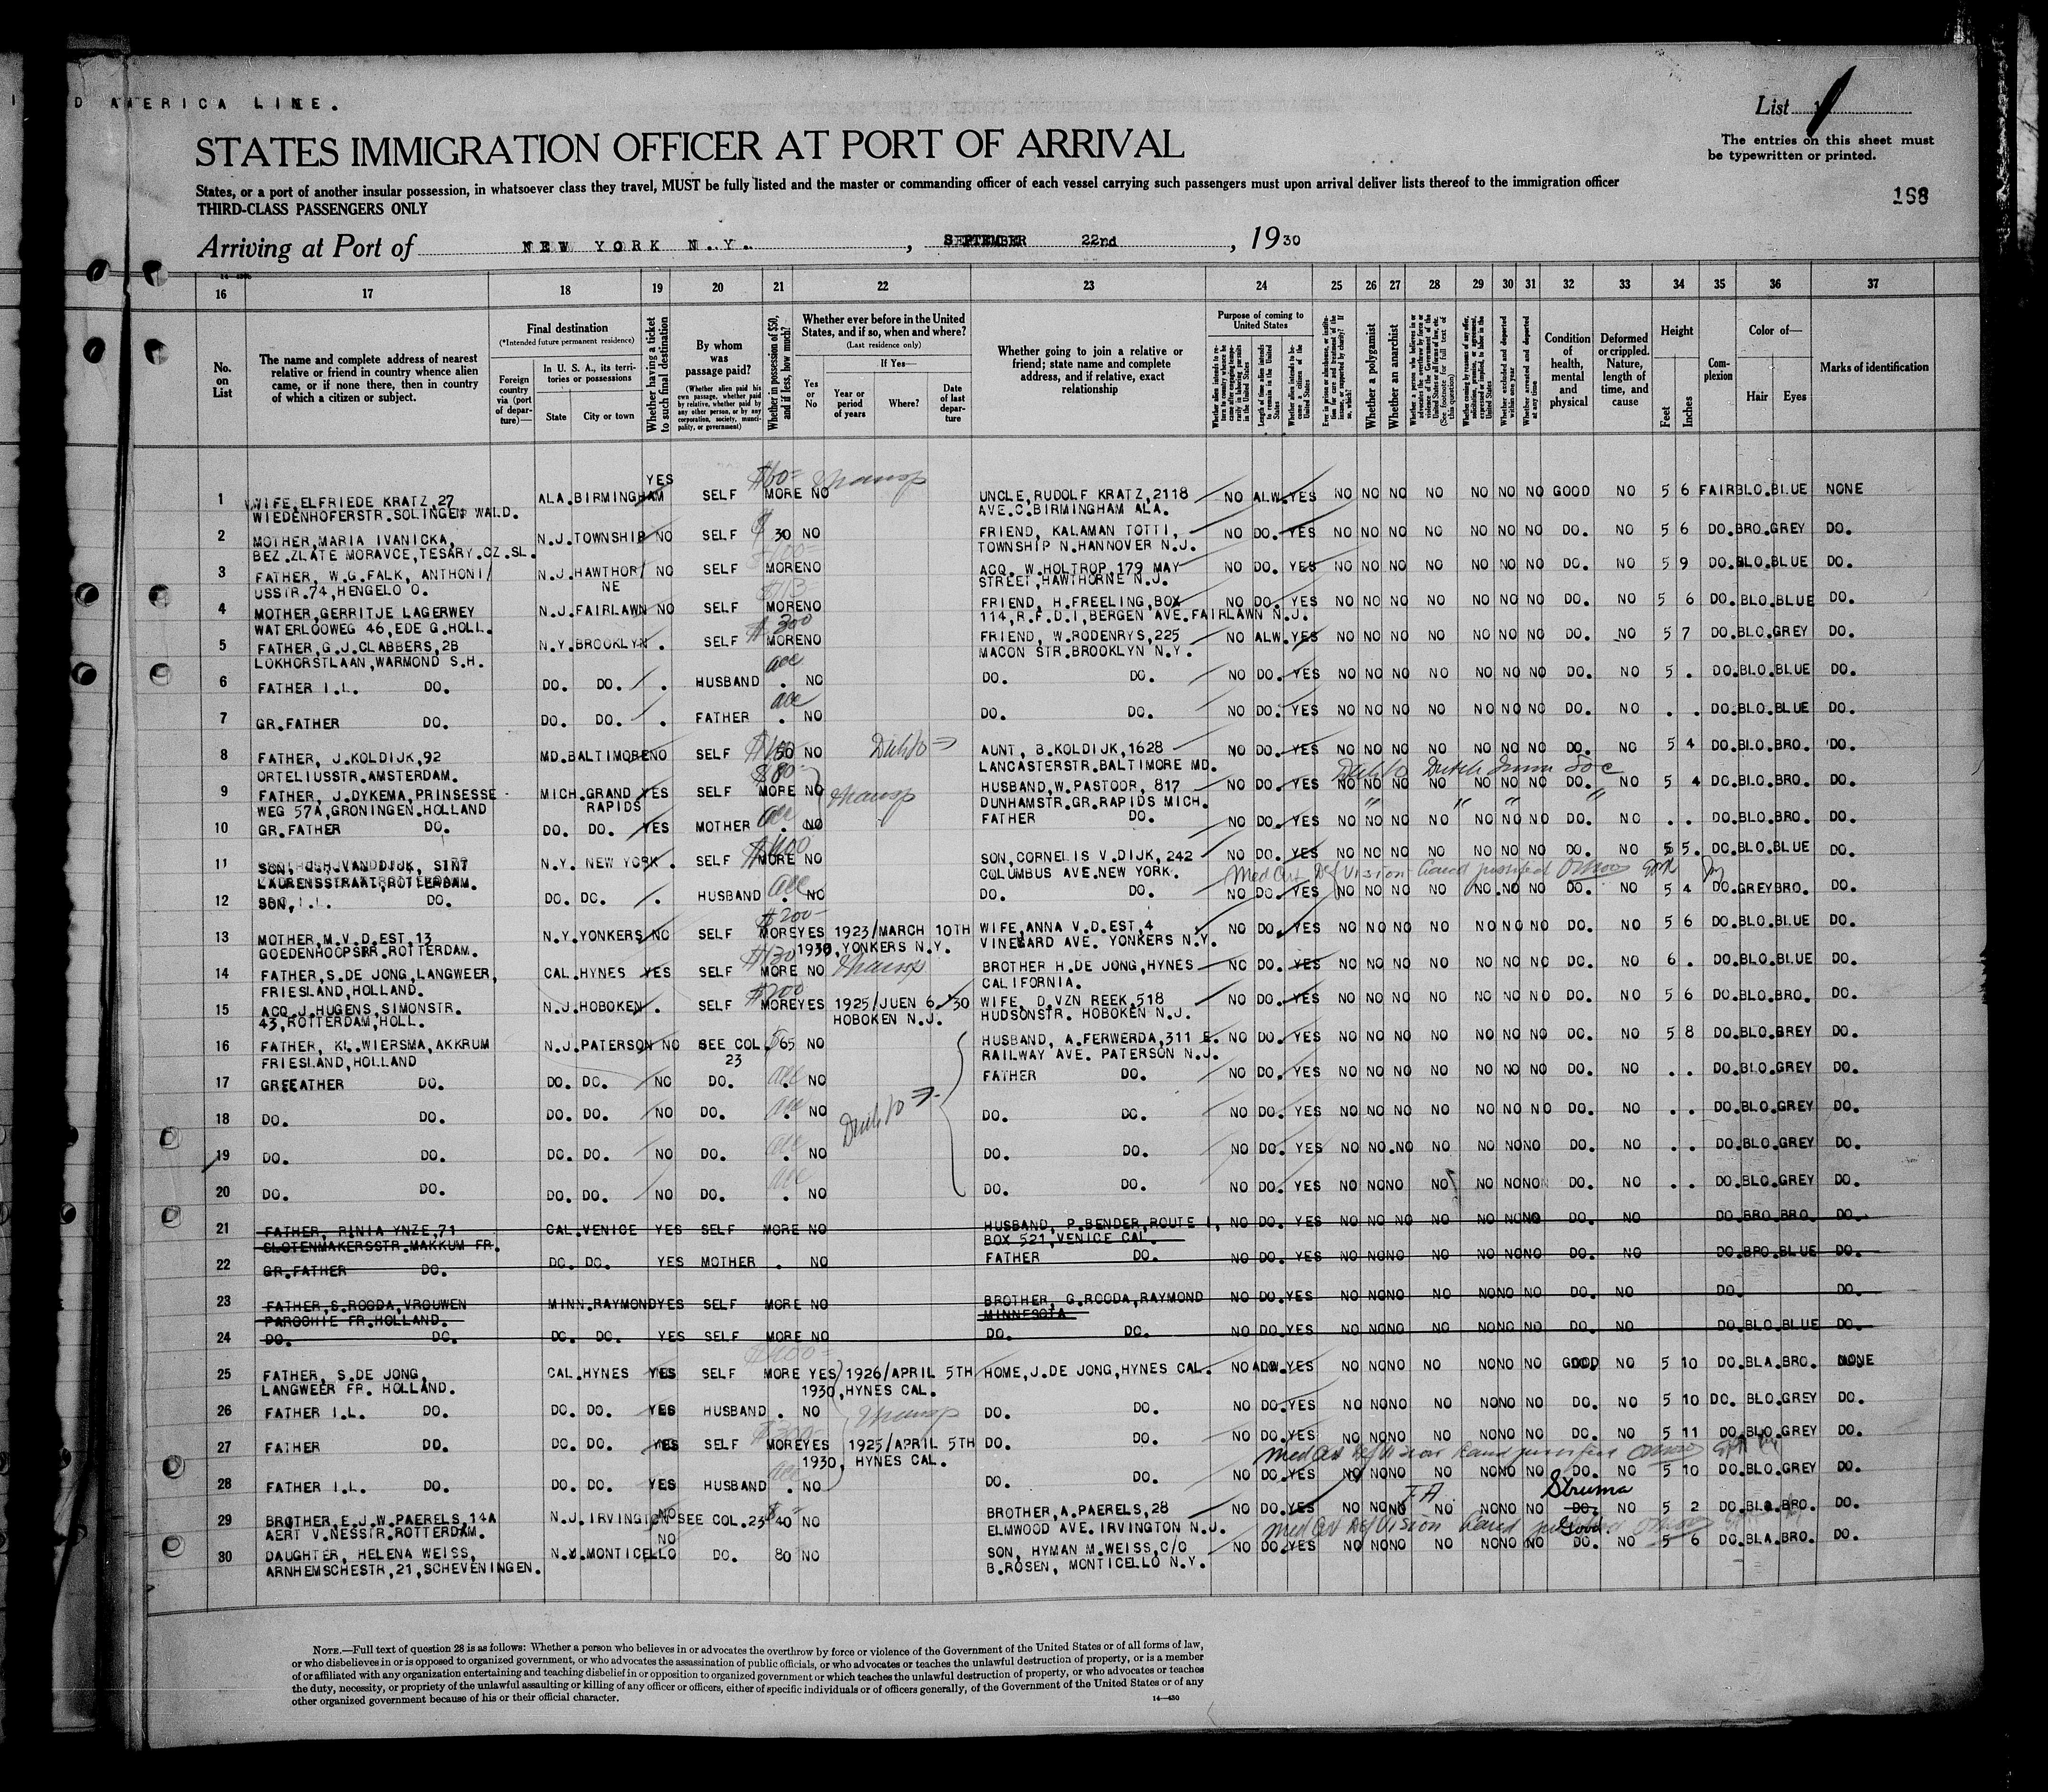 D AMERICA LINE.
List 1
STATES IMMIGRATION OFFICER AT PORT OF ARRIVAL
The entries on this sheet must
be typewritten or printed.
States, or a port of another insular possession, in whatsoever class they travel, MUST be fully listed and the master or commanding officer of each vessel carrying such passengers must upon arrival deliver lists thereof to the immigration officer
THIRD-CLASS PASSENGERS ONLY
168
Arriving at Port of NEW YORK N.Y. , SEPTEMBER 22nd , 1930
16 17 18 19 20 21 22 23 24 25 26 27 28 29 30 31 32 33 34 35 36 37
No. on List
The name and complete address of nearest relative or friend in country whence alien came, or if none there, then in country of which a citizen or subject.
Final destination
(*Intended future permanent residence)
Foreign country via (port of departure)—
In U. S. A., its territories or possessions
State City or town
Whether having a ticket to such final destination
By whom was passage paid?
(Whether alien paid his own passage, whether paid by relative, whether paid by any other person, or by any corporation, society, municipality, or government)
Whether in possession of $50, and if less, how much?
Whether ever before in the United States, and if so, when and where?
(Last residence only)
Yes or No
If Yes—
Year or period of years Where? Date of last departure
Whether going to join a relative or friend; state name and complete address, and if relative, exact relationship
Purpose of coming to United States
Length of time alien intends to remain in the United States
Whether alien intends to become a citizen of the United States
Whether a polygamist
Whether an anarchist
Whether excluded and deported within one year
Whether arrested and deported at any time
Condition of health, mental and physical
Deformed or crippled. Nature, length of time, and cause
Height
Feet Inches
Complexion
Color of—
Hair Eyes
Marks of identification
1 WIFE,ELFRIEDE KRATZ,27 ALA.BIRMINGHAM YES SELF $60= MORE NO transp UNCLE,RUDOLF KRATZ,2118 NO ALW.YES NO NO NO NO NO NO NO GOOD NO 5 6 FAIR BLO.BLUE NONE
WIEDENHOFERSTR.SOLINGEN WALD. AVE.C.BIRMINGHAM ALA.
2 MOTHER,MARIA IVANICKA, N.J.TOWNSHIP NO SELF $ 30 NO FRIEND, KALAMAN TOTTI, NO DO. YES NO NO NO NO NO NO NO DO. NO 5 6 DO.BRO.GREY DO.
BEZ.ZLATE MORAVCE,TESARY.CZ.SL. TOWNSHIP N.HANNOVER N.J.
3 FATHER, W.G.FALK, ANTHONI/ N.J.HAWTHOR/ NO SELF MORENO ACQ. W.HOLTROP,179 MAY NO DO. YES NO NO NO NO NO NO NO DO. NO 5 9 DO.BLO.BLUE DO.
USSTR.74,HENGELO O. NE STREET,HAWTHORNE N.J.
4 MOTHER,GERRITJE LAGERWEY N.J.FAIRLAWN NO SELF $113 MORENO FRIEND, H.FREELING,BOX NO DO. YES NO NO NO NO NO NO NO DO. NO 5 6 DO.BLO.BLUE DO.
WATERLOOWEG 46,EDE G.HOLL. 114,R.F.D.I,BERGEN AVE.FAIRLAWN N.J.
5 FATHER,G.J.CLABBERS,2B N.Y.BROOKLYN . SELF $300 MORENO FRIEND, W.RODENRYS,225 NO ALW.YES NO NO NO NO NO NO NO DO. NO 5 7 DO.BLO.GREY DO.
LOKHORSTLAAN,WARMOND S.H. MACON STR.BROOKLYN N.Y.
6 FATHER I.L. DO. DO. DO. . HUSBAND acc . NO DO. DO. NO DO. YES NO NO NO NO NO NO NO DO. NO 5 . DO.BLO.BLUE DO.
7 GR.FATHER DO. DO. DO. . FATHER acc . NO DO. DO. NO DO. YES NO NO NO NO NO NO NO DO. NO . . DO.BLO.BLUE DO.
8 FATHER, J.KOLDIJK,92 MD.BALTIMORE NO SELF 50 NO AUNT, B.KOLDIJK,1628 NO DO. YES NO NO NO NO NO NO NO DO. NO 5 4 DO.BLO.BRO. DO.
ORTELIUSSTR.AMSTERDAM. LANCASTERSTR.BALTIMORE MD.
9 FATHER, J.DYKEMA,PRINSESSE- MICH.GRAND YES SELF $80- MORE NO transp HUSBAND,W.PASTOOR, 817 NO DO. YES NO NO NO NO NO NO NO DO. NO 5 4 DO.BLO.BRO. DO.
WEG 57A,GRONINGEN.HOLLAND RAPIDS DUNHAMSTR.GR.RAPIDS MICH.
10 GR.FATHER DO. DO. DO. YES MOTHER acc . NO FATHER DO. NO DO. YES NO NO NO NO NO NO NO DO. NO . . DO.BLO.BRO. DO.
11 SON, VAN DIJK, SINT N.Y. NEW YORK . SELF $400 MORE NO SON,CORNELIS V.DIJK,242 NO DO. YES NO NO NO NO NO NO NO DO. NO 5 5. DO.BLO.BLUE DO.
LAURENSSTRAAT,ROTTERDAM. COLUMBUS AVE.NEW YORK. Med Cert Def Vision
12 SON,I.L. DO. DO. DO. . HUSBAND acc . NO DO. DO. NO DO. YES NO NO NO NO NO NO NO DO. NO 5 4 DO.GREYBRO. DO.
13 MOTHER,M.V.D.EST,13 N.Y.YONKERS NO SELF $200- MOREYES 1923/MARCH 10TH WIFE,ANNA V.D.EST,4 NO DO. YES NO NO NO NO NO NO NO DO. NO 5 6 DO.BLO.BLUE DO.
GOEDENHOOPSTR.ROTTERDAM. 1930,YONKERS N.Y. VINEYARD AVE. YONKERS N.Y.
14 FATHER,S.DE JONG,LANGWEER, CAL.HYNES YES SELF $130 MORE NO transp BROTHER H.DE JONG,HYNES NO DO. YES NO NO NO NO NO NO NO DO. NO 6 . DO.BLO.BLUE DO.
FRIESLAND,HOLLAND. CALIFORNIA.
15 ACQ.J.HUGENS,SIMONSTR. N.J.HOBOKEN . SELF $200 MOREYES 1925/JUEN 6.'30 WIFE, D.VZN REEK,518 NO DO. YES NO NO NO NO NO NO NO DO. NO 5 6 DO.BLO.BRO. DO.
43,ROTTERDAM,HOLL. HOBOKEN N.J. HUDSONSTR. HOBOKEN N.J.
16 FATHER, KL.WIERSMA,AKKRUM N.J.PATERSON NO SEE COL. $65 NO HUSBAND, A.FERWERDA,311 E. NO DO. YES NO NO NO NO NO NO NO DO. NO 5 8 DO.BLO.GREY DO.
FRIESLAND,HOLLAND 23 RAILWAY AVE. PATERSON N.J.
17 GR.FATHER DO. DO. DO. NO DO. acc . NO FATHER DO. NO DO. YES NO NO NO NO NO NO NO DO. NO . . DO.BLO.GREY DO.
18 DO. DO. DO. DO. NO DO. acc . NO DO. DO. NO DO. YES NO NO NO NO NO NO NO DO. NO . . DO.BLO.GREY DO.
19 DO. DO. DO. DO. NO DO. acc . NO DO. DO. NO DO. YES NO NO.NO NO NO NONO DO. NO . . DO.BLO.GREY DO.
20 DO. DO. DO. DO. NO DO. acc . NO DO. DO. NO DO. YES NO NONO NO NO NONO DO. NO . . DO.BLO.GREY DO.
21 FATHER, RINIA YNZE,71 CAL.VENICE YES SELF MORE NO HUSBAND, P.BENDER,ROUTE 1, NO DO. YES NO NO NO NO NO NONO DO. NO DO.BRO.BRO. DO.
SLOTENMAKERSSTR.MAKKUM FR. BOX 521,VENICE CAL.
22 GR.FATHER DO. DO. DO. YES MOTHER . NO FATHER DO. NO DO. YES NO NONO NO NO NONO DO. NO DO.BRO.BLUE DO.
23 FATHER,S.ROODA,VROUWEN MINN.RAYMOND YES SELF MORE NO BROTHER, G.ROODA,RAYMOND NO DO.YES NO NONO NO NONO NO DO. NO DO. DO.
PAROCHIE FR.HOLLAND. MINNESOTA
24 DO. DO. DO. DO. YES SELF MORE NO DO. DO. NO DO.YES NO NONO NO NONO NO DO. NO DO.BLO.BLUE DO.
25 FATHER, S.DE JONG, CAL.HYNES YES SELF MORE YES 1926/APRIL 5TH HOME,J.DE JONG,HYNES CAL. NO ALW.YES NO NONO NO NONO NO GOOD NO 5 10 DO.BLA.BRO. NONE
LANGWEER FR. HOLLAND. 1930,HYNES CAL.
26 FATHER I.L. DO. DO. DO. YES HUSBAND . NO transp DO. DO. NO DO.YES NO NONO NO NONO NO DO. NO 5 10 DO. BLO.GREY DO.
27 FATHER DO. DO. DO. YES SELF $300- MOREYES 1925/APRIL 5TH DO. DO. NO DO.YES NO NONO NO NONO NO DO. NO 5 11 DO.BLO.GREY DO.
1930, HYNES CAL. Med Cert Def Vision
28 FATHER I.L. DO. DO. DO. YES HUSBAND acc . NO DO. DO. NO DO.YES NO NONO NO NONO NO DO. NO 5 10 DO.BLO.GREY DO.
Struma
29 BROTHER,E.J.W.PAERELS,14A N.J.IRVINGTON NO SEE COL.23 40 NO BROTHER,A.PAERELS,28 NO DO.YES NO NONO NO NONO NO DO. NO 5 2 DO.BLO.BRO. DO.
AERT V.NESSTR.ROTTERDAM. ELMWOOD AVE. IRVINGTON N.J. Med Cert Def Vision Good
30 DAUGHTER, HELENA WEISS, N.Y.MONTICELLO NO DO. 80 NO SON, HYMAN M.WEISS,C/O NO DO.YES NO NONO NO NONO NO DO. NO 5 6 DO.BLA.BRO. DO.
ARNHEMSCHESTR,21,SCHEVENINGEN. B.ROSEN, MONTICELLO N.Y.
NOTE.—Full text of question 28 is as follows: Whether a person who believes in or advocates the overthrow by force or violence of the Government of the United States or of all forms of law,
or who disbelieves in or is opposed to organized government, or who advocates the assassination of public officials, or who advocates or teaches the unlawful destruction of property, or is a member
of or affiliated with any organization entertaining and teaching disbelief in or opposition to organized government or which teaches the unlawful destruction of property, or who advocates or teaches
the duty, necessity, or propriety of the unlawful assaulting or killing of any officer or officers, either of specific individuals or of officers generally, of the Government of the United States or of any
other organized government because of his or their official character.
14—430